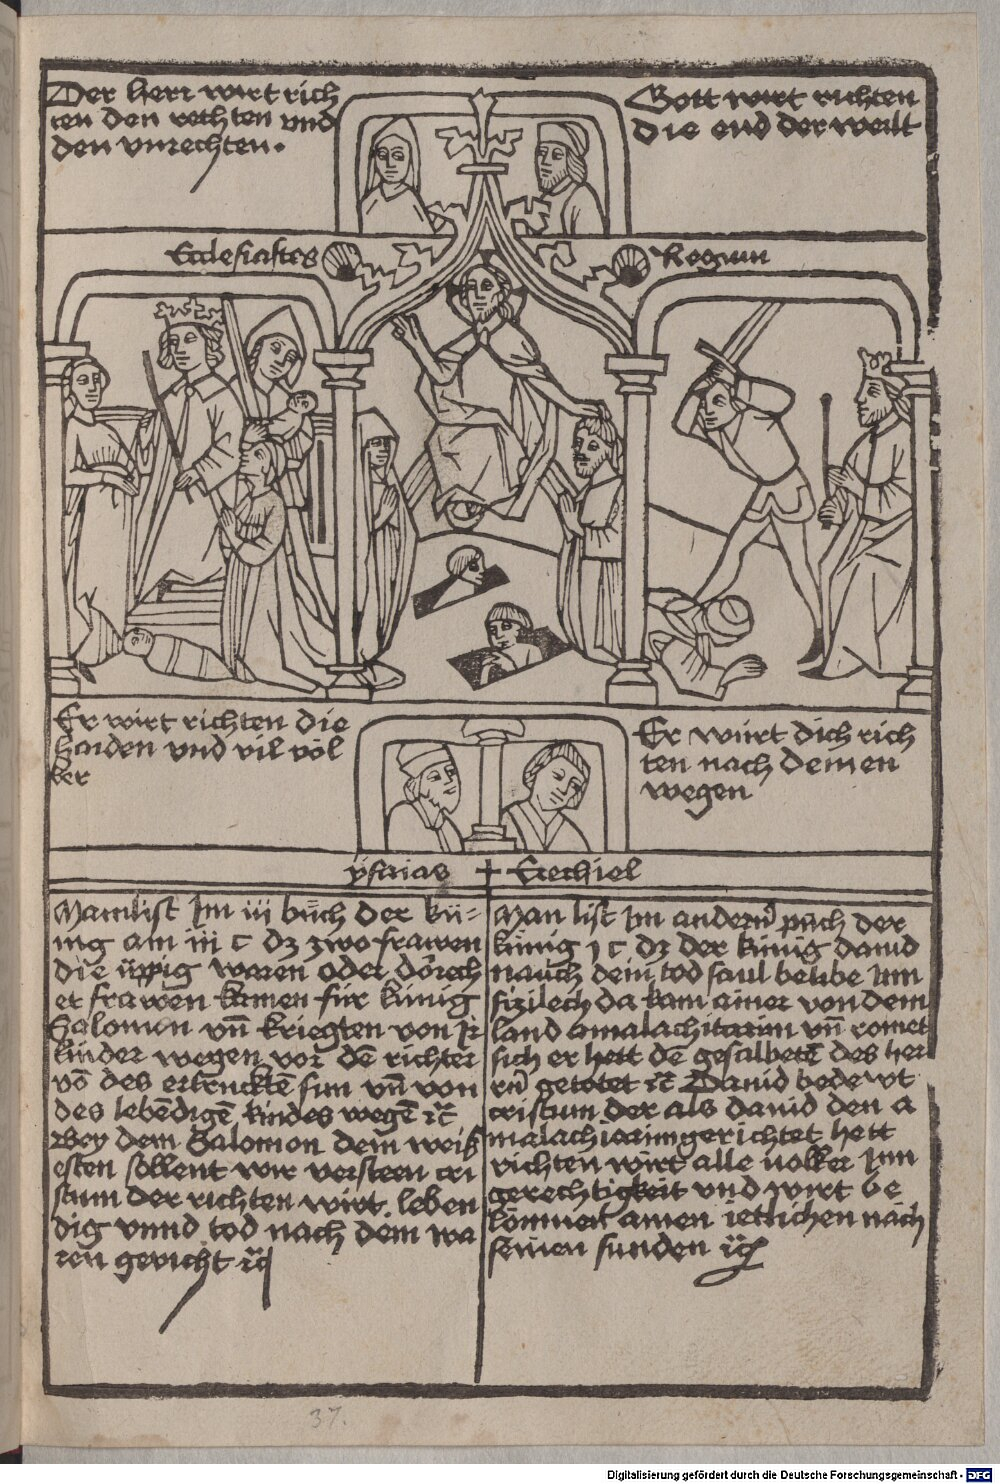 Der herr wirt rich
ten den rechten und
den vnrechten.
Gott wirt richten
die end der welt
Ecclesiastes
Regum
Er wirt richten die
haiden vnd vil völ
ker
Er würt dich rich
ten nach deinen
wegen
ysaias + Ezechiel
Man list Im iii büch der kü-
nig am iii c dz zwo frawen
die üppig waren oder dörech
et frawen kamen für künig
Salomon vn̄ kriegten von Ir
kinder wegen vor dē richter
vō des ertruckten sun vn̄ von
des lebēdigē kindes wegē ꝛc̄
Bey dem Salomon dem weiß
esten söllent wir versteen cri
stum der richten wirt. leben
dig vnnd tod nach dem wa
ren gericht ꝛc
Man list Im andern̄ pùch der
künig 1 c dz der künig dauid
nauch dem tod saul belibe Inn
sizilech da kam ainer von dem
land amalachitarim vn̄ romet
sich er hett dē gesalbetē des her
rn̄ getötet ꝛc̄ Dauid bedewt
cristum der als dauid den a
malachitaim gerichtet hett
richten wirt alle völker Inn
gerechtigkeit vnd wirt be
lönnen ainen ietlichen nach
seinen sunden ꝛc
37.
Digitalisierung gefördert durch die Deutsche Forschungsgemeinschaft - DFG